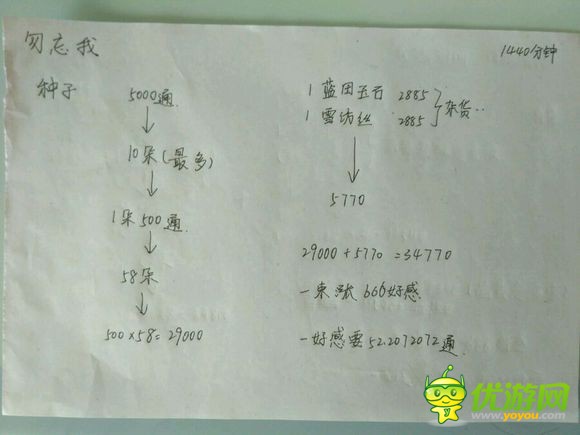 勿忘我
1440分钟
种子
5000通
10朵(最多)
1朵500通
58朵
500×58=29000
1 蓝田玉石 2885
1 雪纺丝 2885
杂货..
5770
29000+5770=34770
一束涨666好感
一好感要52.2072072通
优游网
www.yoyou.com